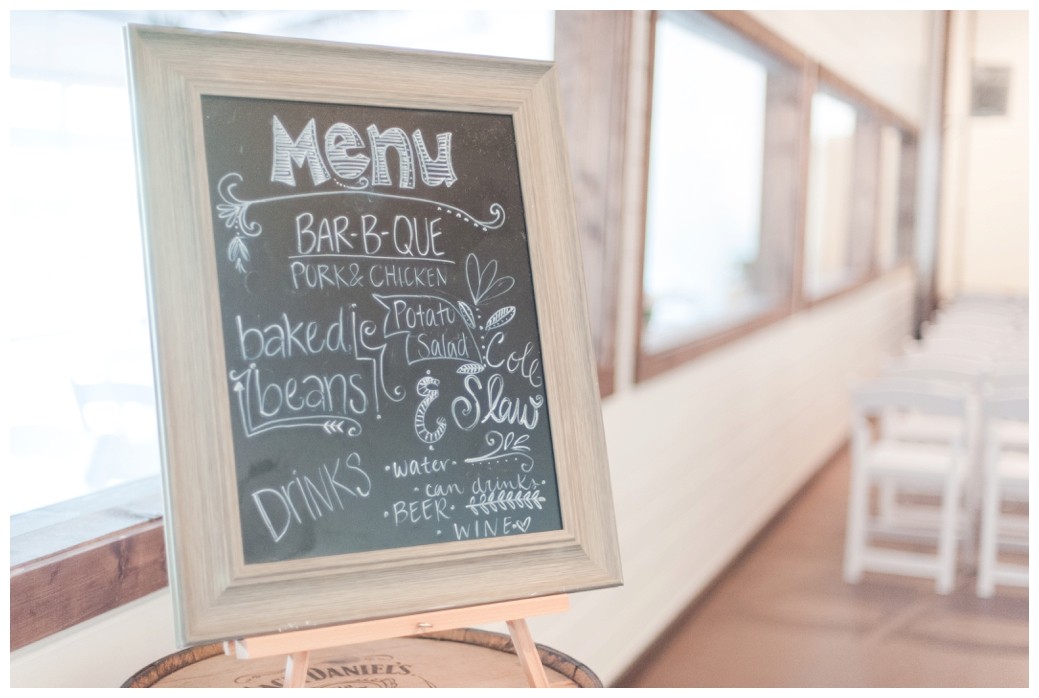 Menu
BAR-B-QUE
PORK & CHICKEN
baked
beans
Potato
Salad
&
Cole
Slaw
DRINKS
•water•
•can drinks•
•BEER•
•WINE♡
JACK DANIEL'S